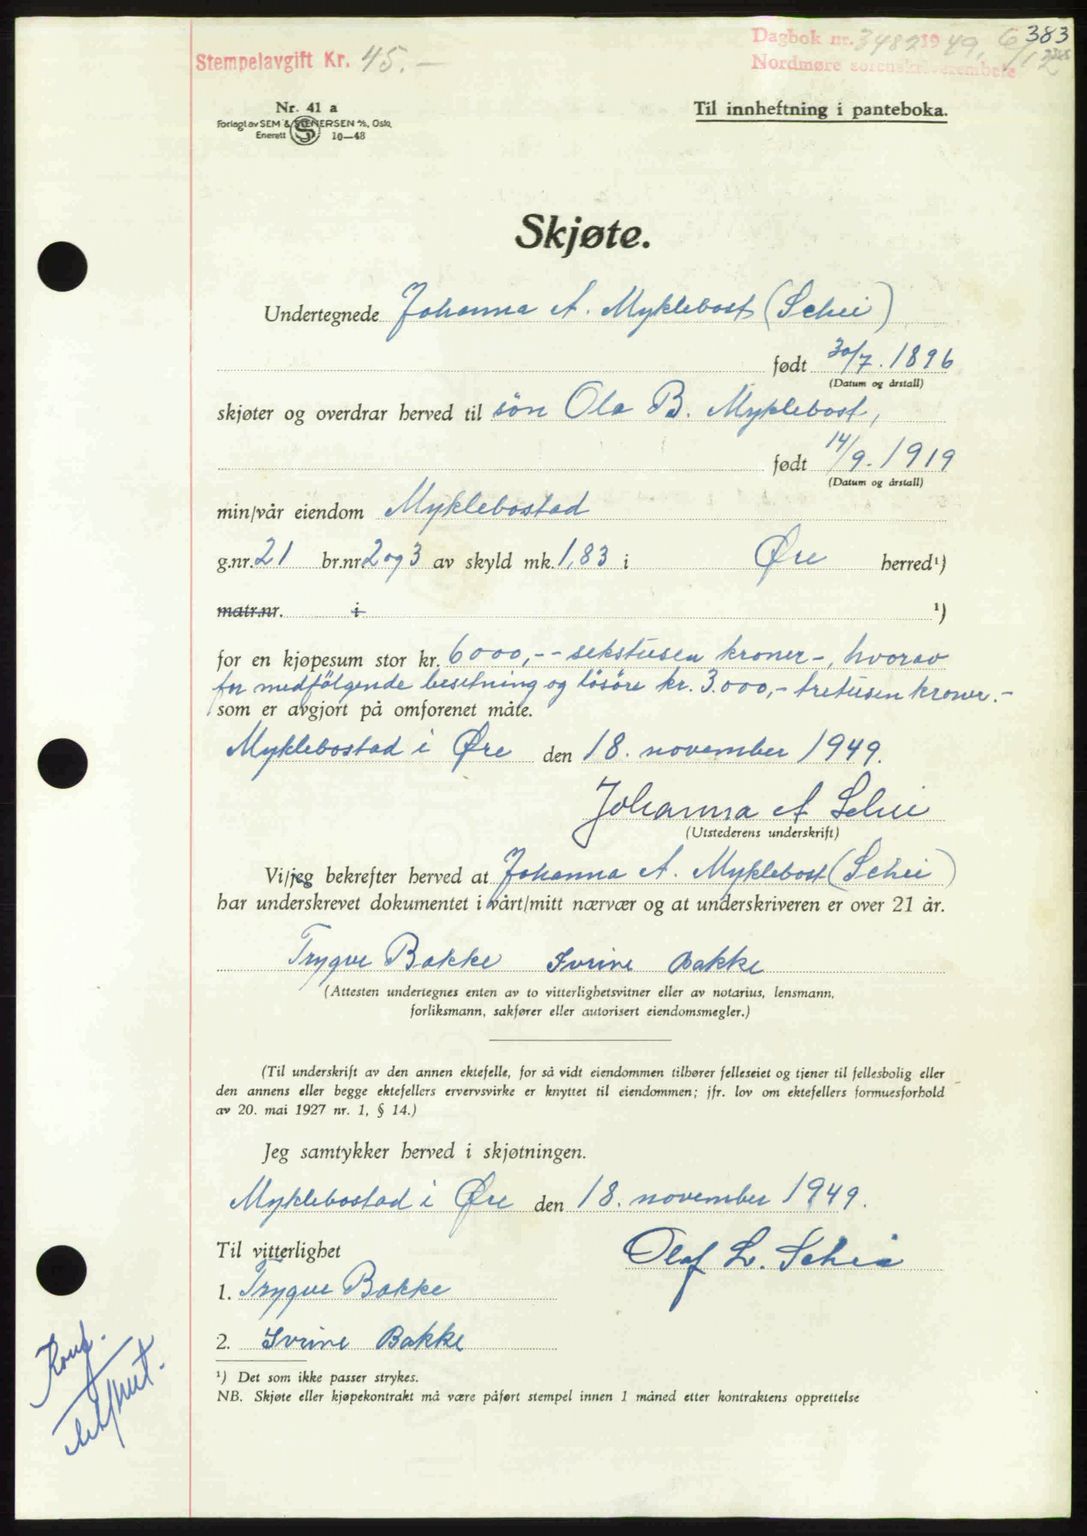 Stempelavgift Kr. 45.—
Dagbok nr. 3482 1949, 6/12
383
Nordmøre sorenskriverembete
Nr. 41 a
Forlagt av SEM & STENERSEN A/S, Oslo
Enerett 10—48
Til innheftning i panteboka.
Skjøte.
Undertegnede Johanna A. Myklebost (Schei)
født 30/7. 1896
(Datum og årstall)
skjøter og overdrar herved til sön Ola B. Myklebost,
født 14/9. 1919
(Datum og årstall)
min/vår eiendom Myklebostad
g.nr. 21 br.nr. 2 og 3 av skyld mk. 1,83 i Øre herred¹)
matr.nr. i ¹)
for en kjøpesum stor kr. 6000,-- sekstusen kroner-, hvorav
for medfölgende besetning og lösöre kr. 3.000,- tretusen kroner.-
som er avgjort på omforenet måte.
Myklebostad i Øre den 18. november 1949.
Johanna A Schei
(Utstederens underskrift)
Vi/jeg bekrefter herved at Johanna A. Myklebost (Schei)
har underskrevet dokumentet i vårt/mitt nærvær og at underskriveren er over 21 år.
Trygve Bakke Bakke
(Attesten undertegnes enten av to vitterlighetsvitner eller av notarius, lensmann,
forliksmann, sakfører eller autorisert eiendomsmegler.)
(Til underskrift av den annen ektefelle, for så vidt eiendommen tilhører felleseiet og tjener til fellesbolig eller
den annens eller begge ektefellers ervervsvirke er knyttet til eiendommen; jfr. lov om ektefellers formuesforhold
av 20. mai 1927 nr. 1, § 14.)
Jeg samtykker herved i skjøtningen.
Myklebostad i Øre den 18. november 1949.
Til vitterlighet
Olaf L. Schei
1. Trygve Bakke
2. Bakke
¹) Det som ikke passer strykes.
NB. Skjøte eller kjøpekontrakt må være påført stempel innen 1 måned etter kontraktens opprettelse